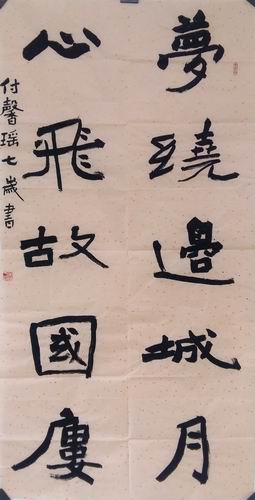 夢繞邊城月
心飛故國廔
付馨瑶七歲書